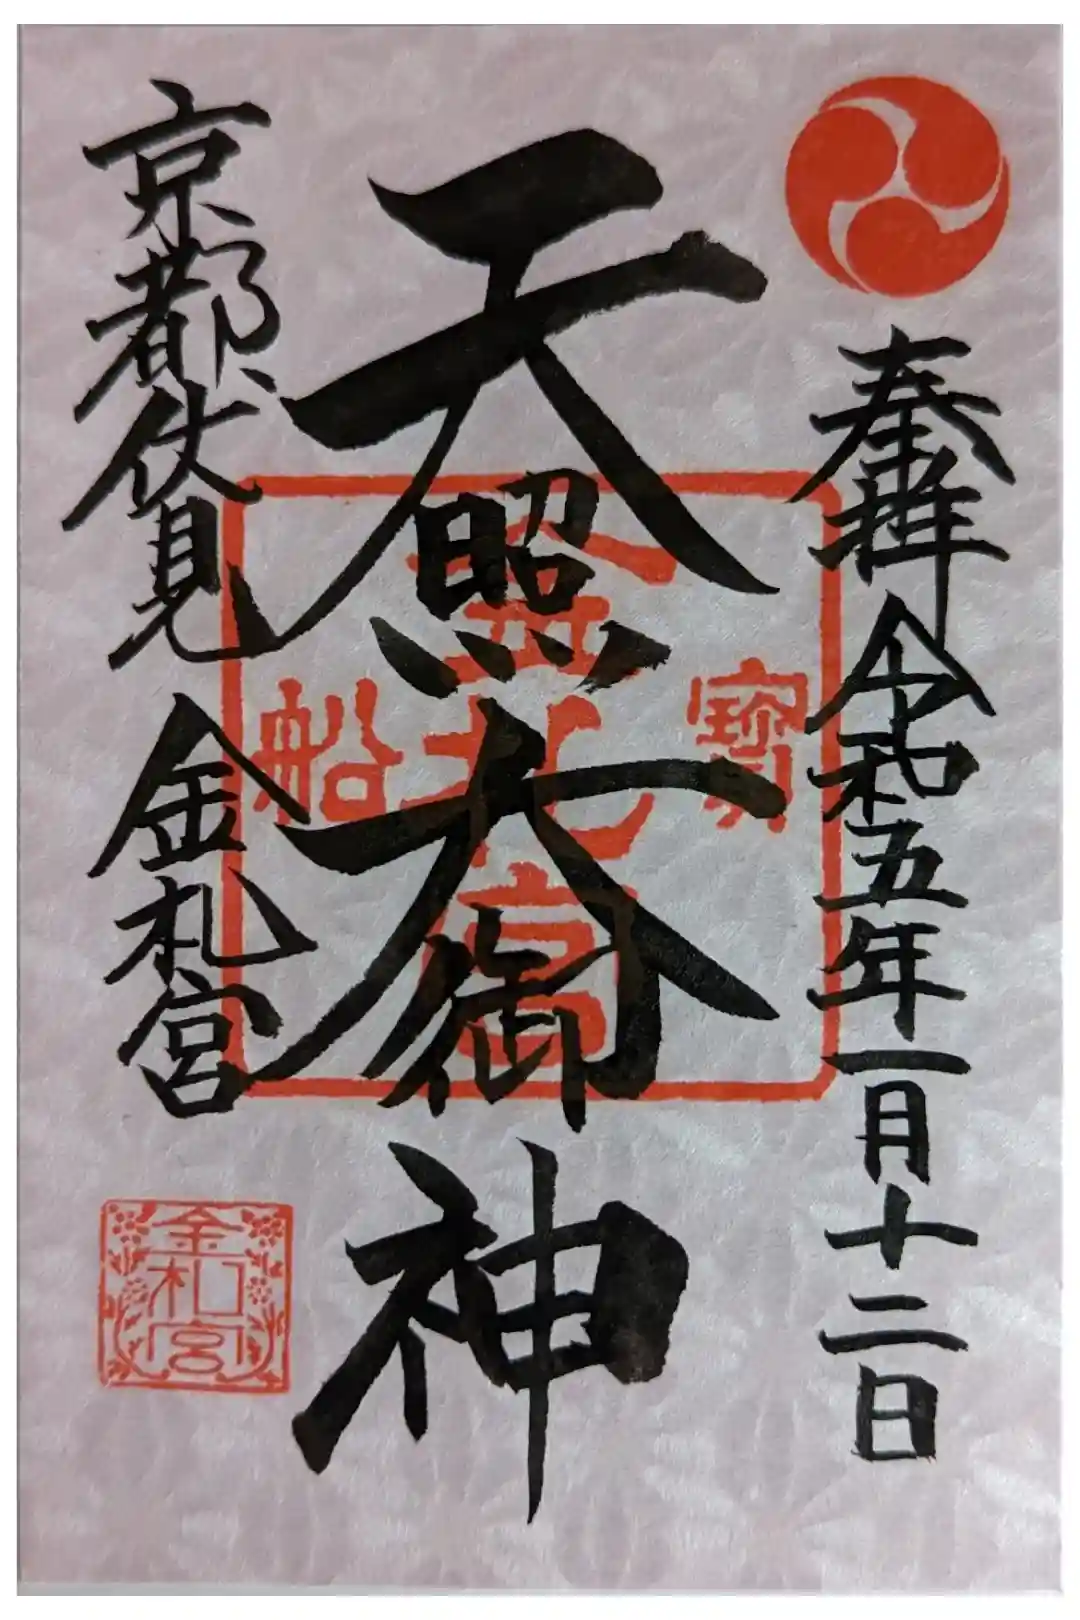 奉拝 令和五年一月十二日
天照大御神
寶
金札宮
船
京都伏見 金札宮
金札宮